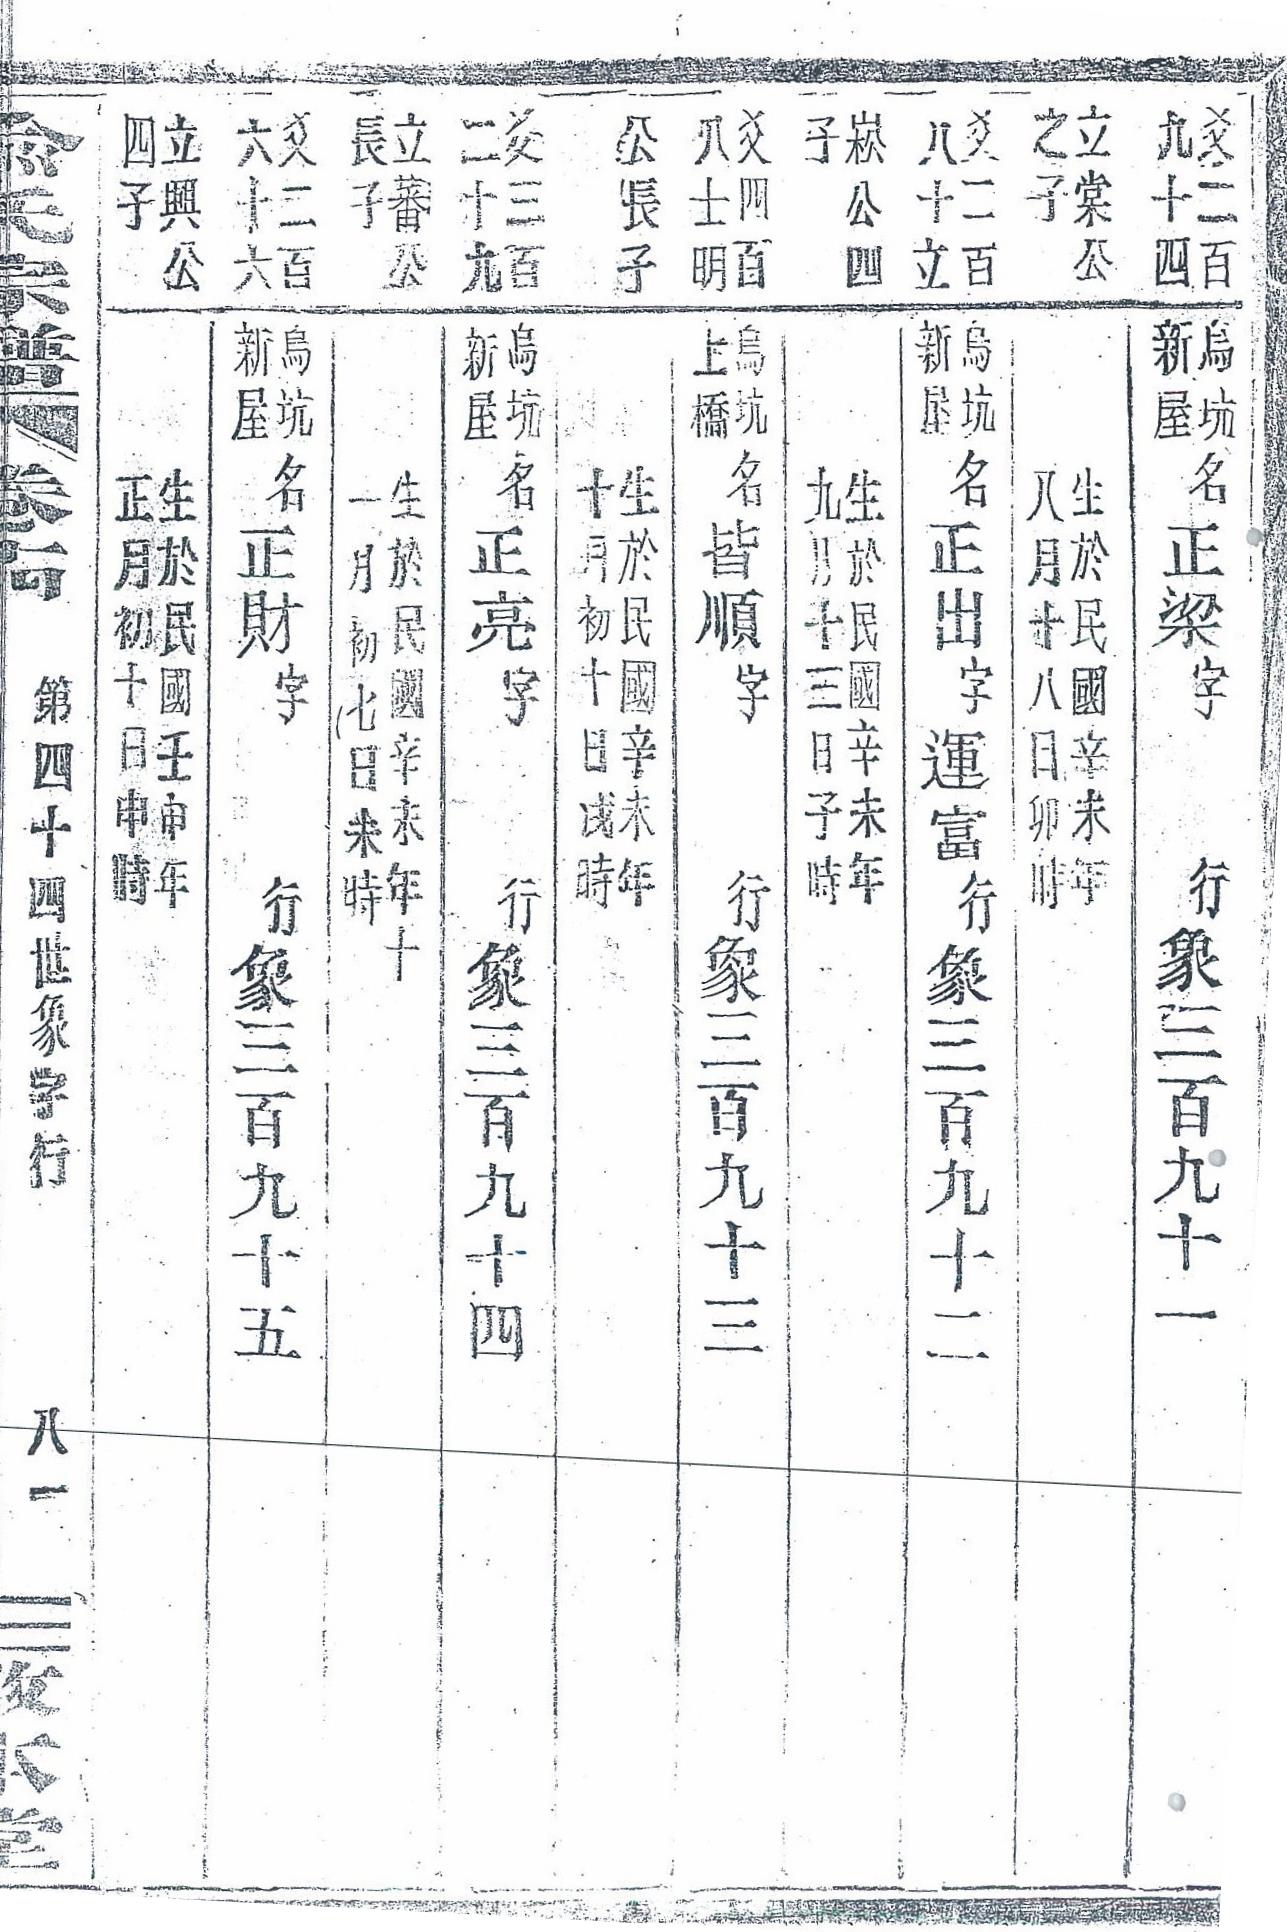 爻二百
九十四
立棠公
之子
烏坑
新屋
名正梁字 行象三百九十一
生於民國辛未年
八月十八日卯時
爻二百
八十立
崧公四
子
烏坑
新屋
名正出字運富行象三百九十二
生於民國辛未年
九月十三日子時
爻四百
八士明
公長子
烏坑
上橋
名皆順字 行象三百九十三
生於民國辛未年
十月初十日戌時
爻三百
二十九
立蕃公
長子
烏坑
新屋
名正亮字 行象三百九十四
生於民國辛未年十
一月初七日未時
爻二百
六十六
立興公
四子
烏坑
新屋
名正財字 行象三百九十五
生於民國壬申年
正月初十日申時
氏宗譜
第四十四世象字行 八一